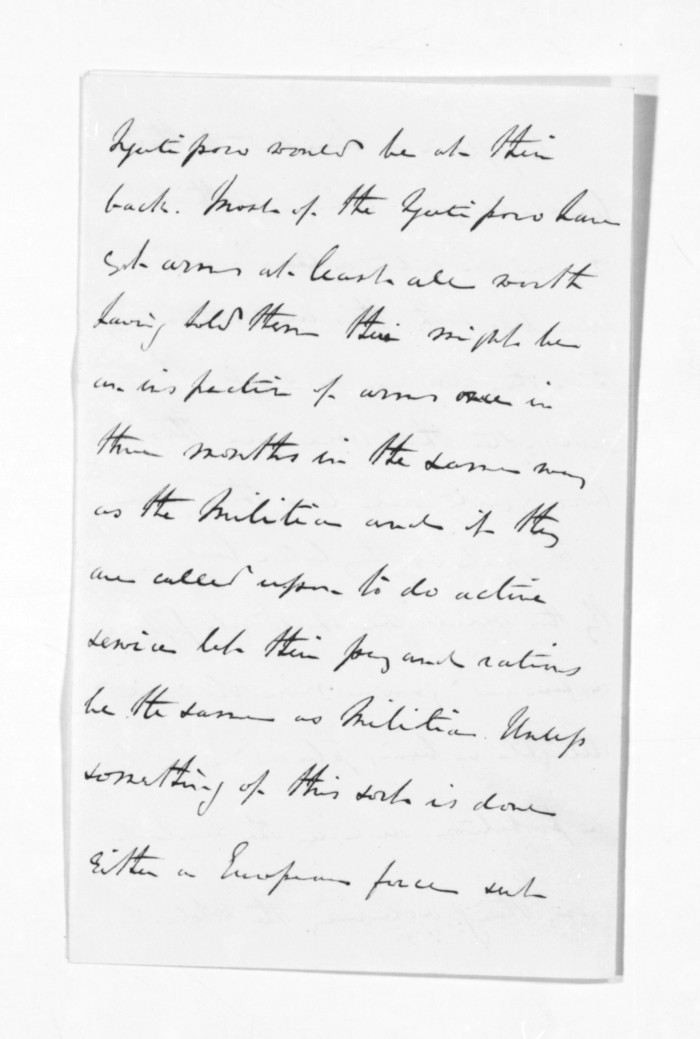 Ngatiporo would be at their
back. Most of the Ngatiporo have
got arms at least all worth
having told them their might be
an inspection of arms once in
three months in the same way
as the Militia and if they
are called upon to do active
service let their pay and rations
be the same as Militia. Unless
something of this sort is done
either a European force sent